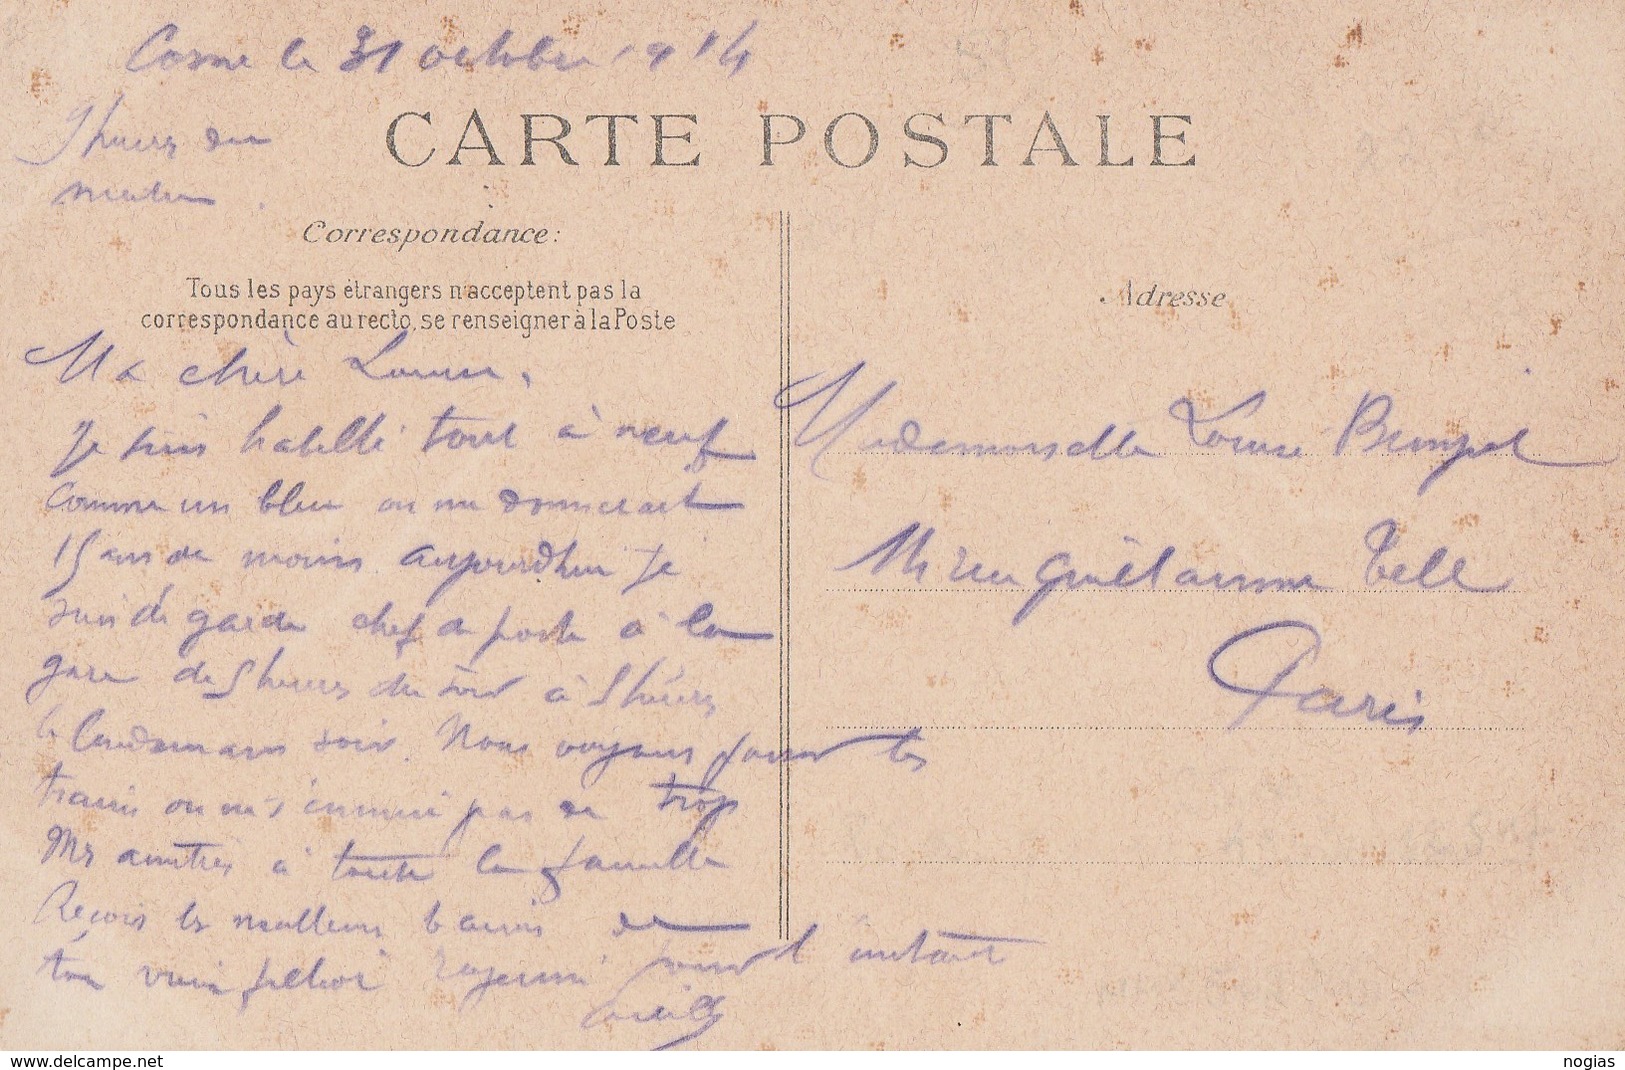 Cosne le 31 octobre 1914
9 heures du
matin.
CARTE POSTALE
Correspondance:
Tous les pays étrangers n'acceptent pas la
correspondance au recto, se renseigner à la Poste
Ma chère Louise,
Je suis habillé tout à neuf
comme un bleu on me donnerait
15 ans de moins aujourd'hui je
suis de garde chef de poste à la
gare de 5 heures du soir à 5 heures
le lendemain soir. Nous voyons passer les
trains on ne s'ennuie pas de trop
Mes amitiés à toute la famille
Reçois les meilleurs baisers de
ton vieux rajeuni pour l'instant
Adresse
Mademoiselle Louise
14 rue Guillaume Tell
Paris
www.delcampe.net
nogias